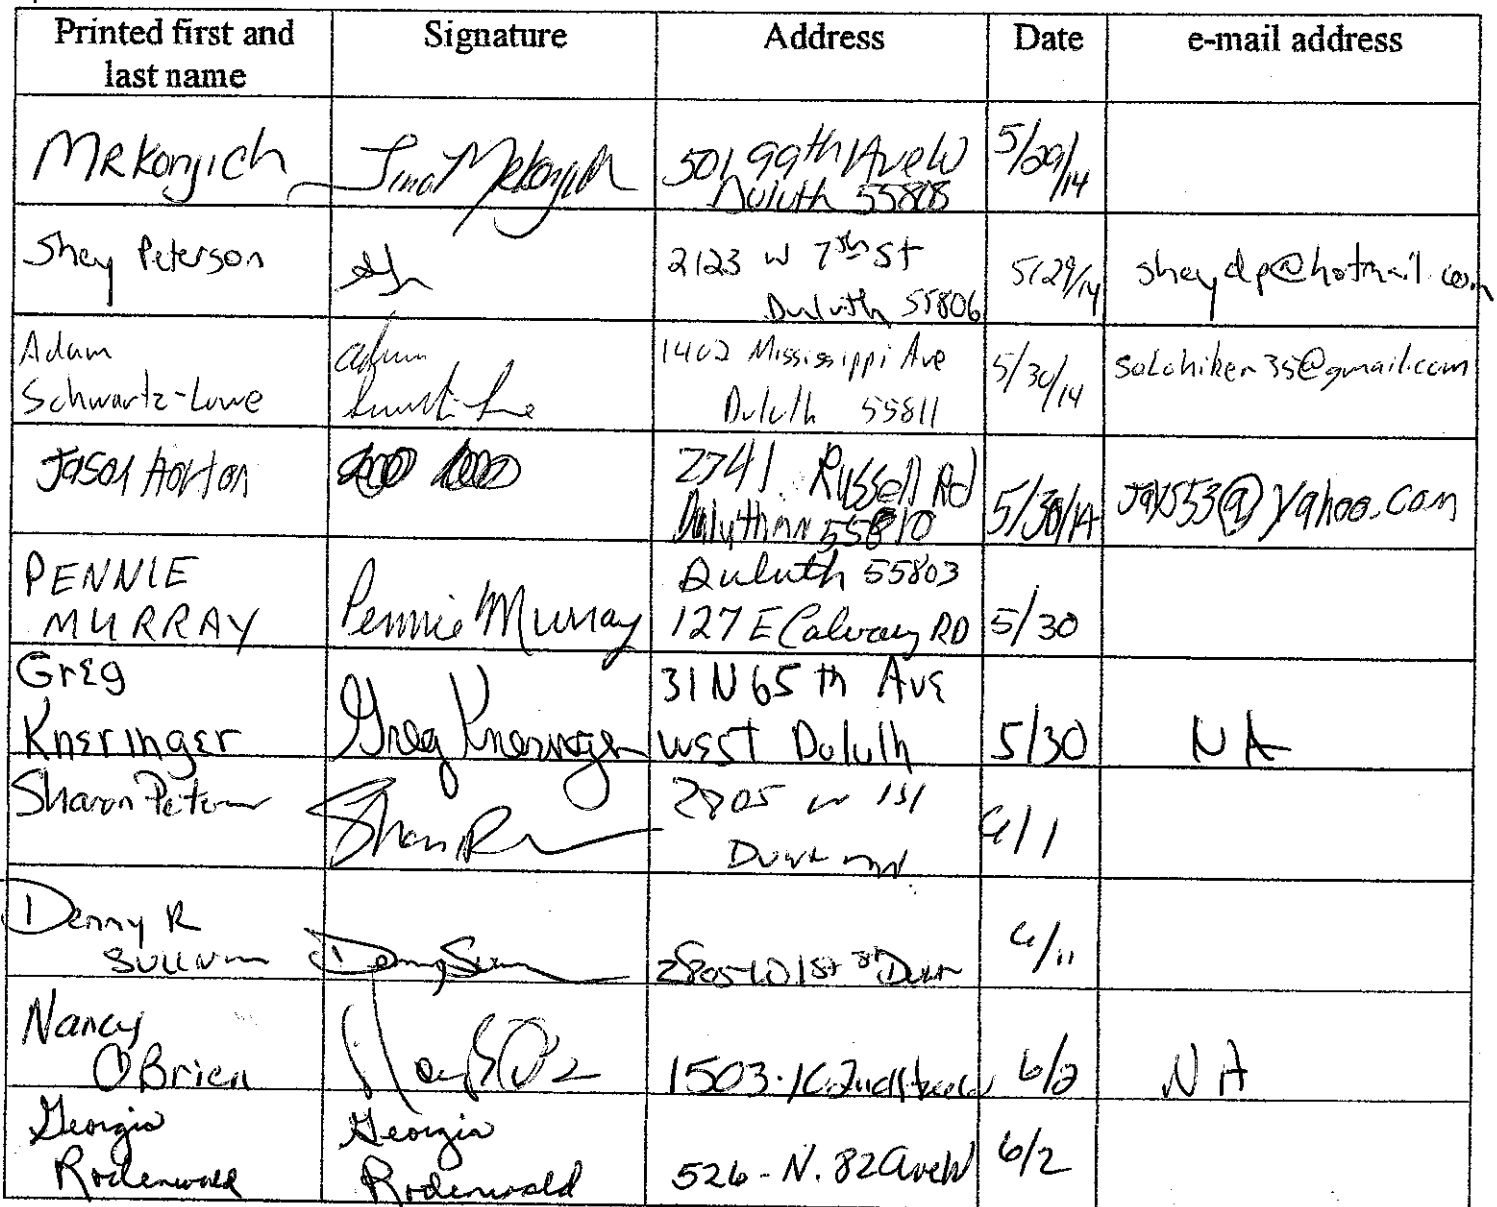 Printed first and last name Signature Address Date e-mail address
Mrkonjich Tina Mrkonjich 501 99th Ave W Duluth 55808 5/29/14
Shey Peterson 2123 W 7th St Duluth 55806 5/29/14 sheydp@hotmail.com
Adam Schwartz-Lowe Adam 1402 Mississippi Ave Duluth 55811 5/30/14 solohiker35@gmail.com
Jason Horton 2741 Russell Rd Duluth mn 55810 5/30/14 Jay553@yahoo.com
PENNIE MURRAY Pennie Murray Duluth 55803 127 E Calvary RD 5/30
Greg Kneringer Greg Kneringer 31 N 65th Ave west Duluth 5/30 NA
Sharon 2805 W 1st 6/1
Denny R Denny 2805 W 1st St 6/1
Nancy O'Brien 1503 6/2 NA
Georgia Rodenwald Georgia Rodenwald 526-N. 82 Ave W 6/2